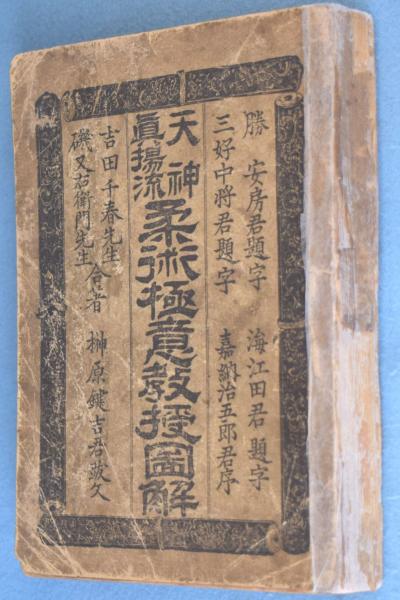 勝 安房君題字 海江田君題字
三好中将君題字 嘉納治五郎君序
天神
眞揚流
柔術極意教授圖解
吉田千春先生
磯又右衛門先生
合著 榊原鍵吉君跋文